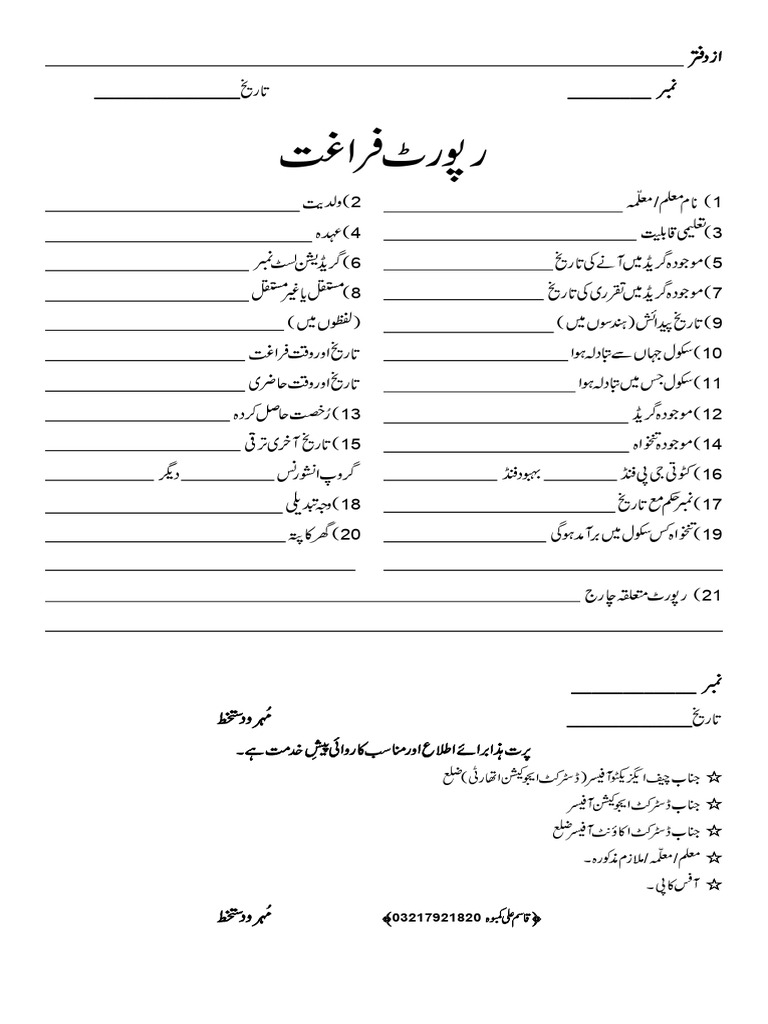 از دفتر ____________________
نمبر __________ تاریخ __________
رپورٹ فراغت
1) نام معلم/معلّمہ __________ 2) ولدیت __________
3) تعلیمی قابلیت __________ 4) عہدہ __________
5) موجودہ گریڈ میں آنے کی تاریخ __________ 6) گریڈیشن لسٹ نمبر __________
7) موجودہ گریڈ میں تقرری کی تاریخ __________ 8) مستقل یا غیر مستقل __________
9) تاریخ پیدائش (ہندسوں میں) __________ (لفظوں میں) __________
10) سکول جہاں سے تبادلہ ہوا __________ تاریخ اور وقت فراغت __________
11) سکول جس میں تبادلہ ہوا __________ تاریخ اور وقت حاضری __________
12) موجودہ گریڈ __________ 13) رُخصت حاصل کردہ __________
14) موجودہ تنخواہ __________ 15) تاریخ آخری ترقی __________
16) کٹوتی جی پی فنڈ __________ بہبود فنڈ __________ گروپ انشورنس __________ دیگر __________
17) نمبر حکم مع تاریخ __________ 18) وجہ تبدیلی __________
19) تنخواہ کس سکول میں برآمد ہوگی __________ 20) گھر کا پتہ __________
21) رپورٹ متعلقہ چارج __________
نمبر __________
تاریخ __________ مُہر و دستخط
پرت ہذا برائے اطلاع اور مناسب کاروائی پیشِ خدمت ہے۔
☆ جناب چیف ایگزیکٹو آفیسر (ڈسٹرکٹ ایجوکیشن اتھارٹی) ضلع
☆ جناب ڈسٹرکٹ ایجوکیشن آفیسر
☆ جناب ڈسٹرکٹ اکاؤنٹ آفیسر ضلع
☆ معلم/معلّمہ/ملازم مذکورہ۔
☆ آفس کاپی۔
﴿قاسم علی کمبوہ 03217921820﴾ مُہر و دستخط